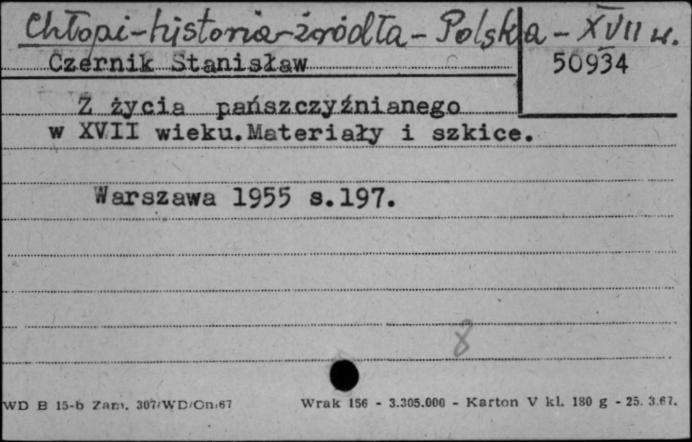 Chłopi-historia-źródła - Polska - XVII w.
Czernik Stanisław
50934
Z życia pańszczyźnianego
w XVII wieku.Materiały i szkice.
Warszawa 1955 s.197.
8
WD B 15-b Zam. 307/WD/Gn/67
Wrak 156 - 3.305.000 - Karton V kl. 180 g - 25. 3.67.